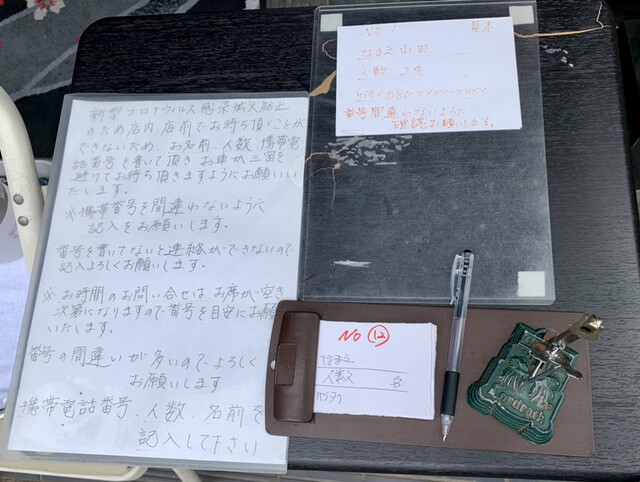 新型コロナウィルス感染拡大防止
のため店内、店前でお待ち頂くことが
できないため、お名前、人数、携帯電
話番号を書いて頂き お車か三密を
避けてお待ち頂きますようにお願いい
たします。
※携帯番号を間違わないように
記入をお願いします。
番号を書いてないと連絡ができないので
記入よろしくお願いします。
※ お時間のお問い合せはお席が空き
次第になりますので番号を目安にお願
いいたします。
番号の間違いが多いので、よろしく
お願いします
携帯電話番号、人数、名前を
記入して下さい
No 1 見本
なまえ 山田
人数 2名
ケイタイ 080-××××-××××
番号間違わないように
確認お願いします。
No ⑫
なまえ
人数 名